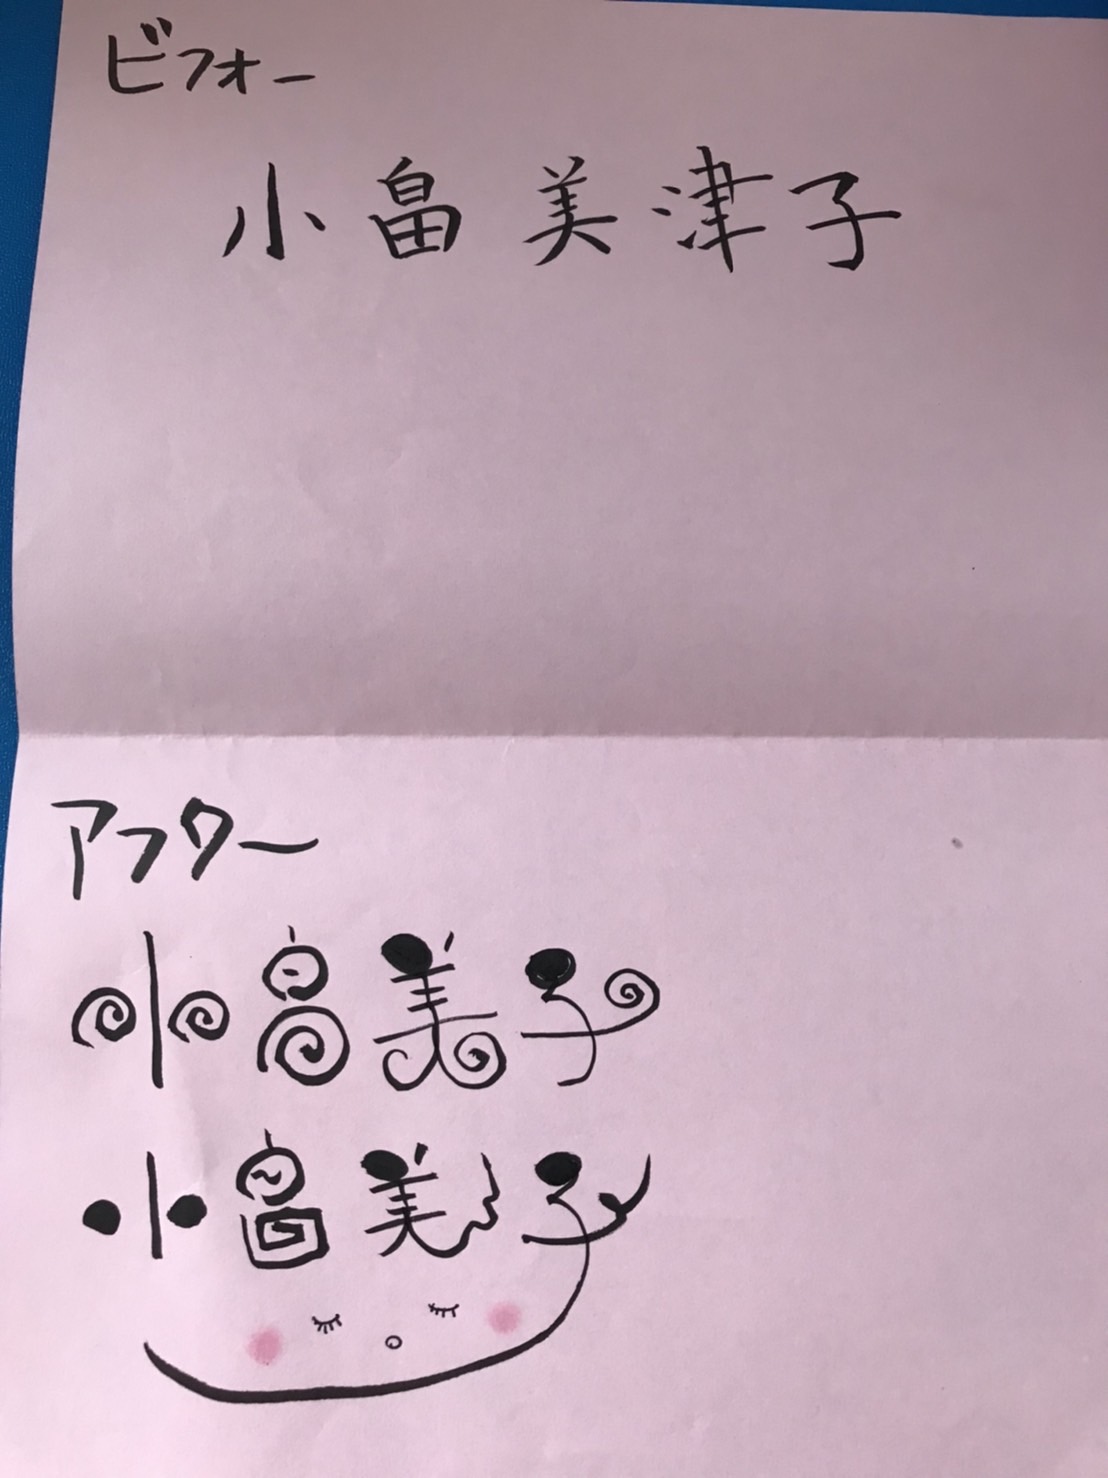 ビフォー
小畠美津子
アフター
小畠美子
小畠美子